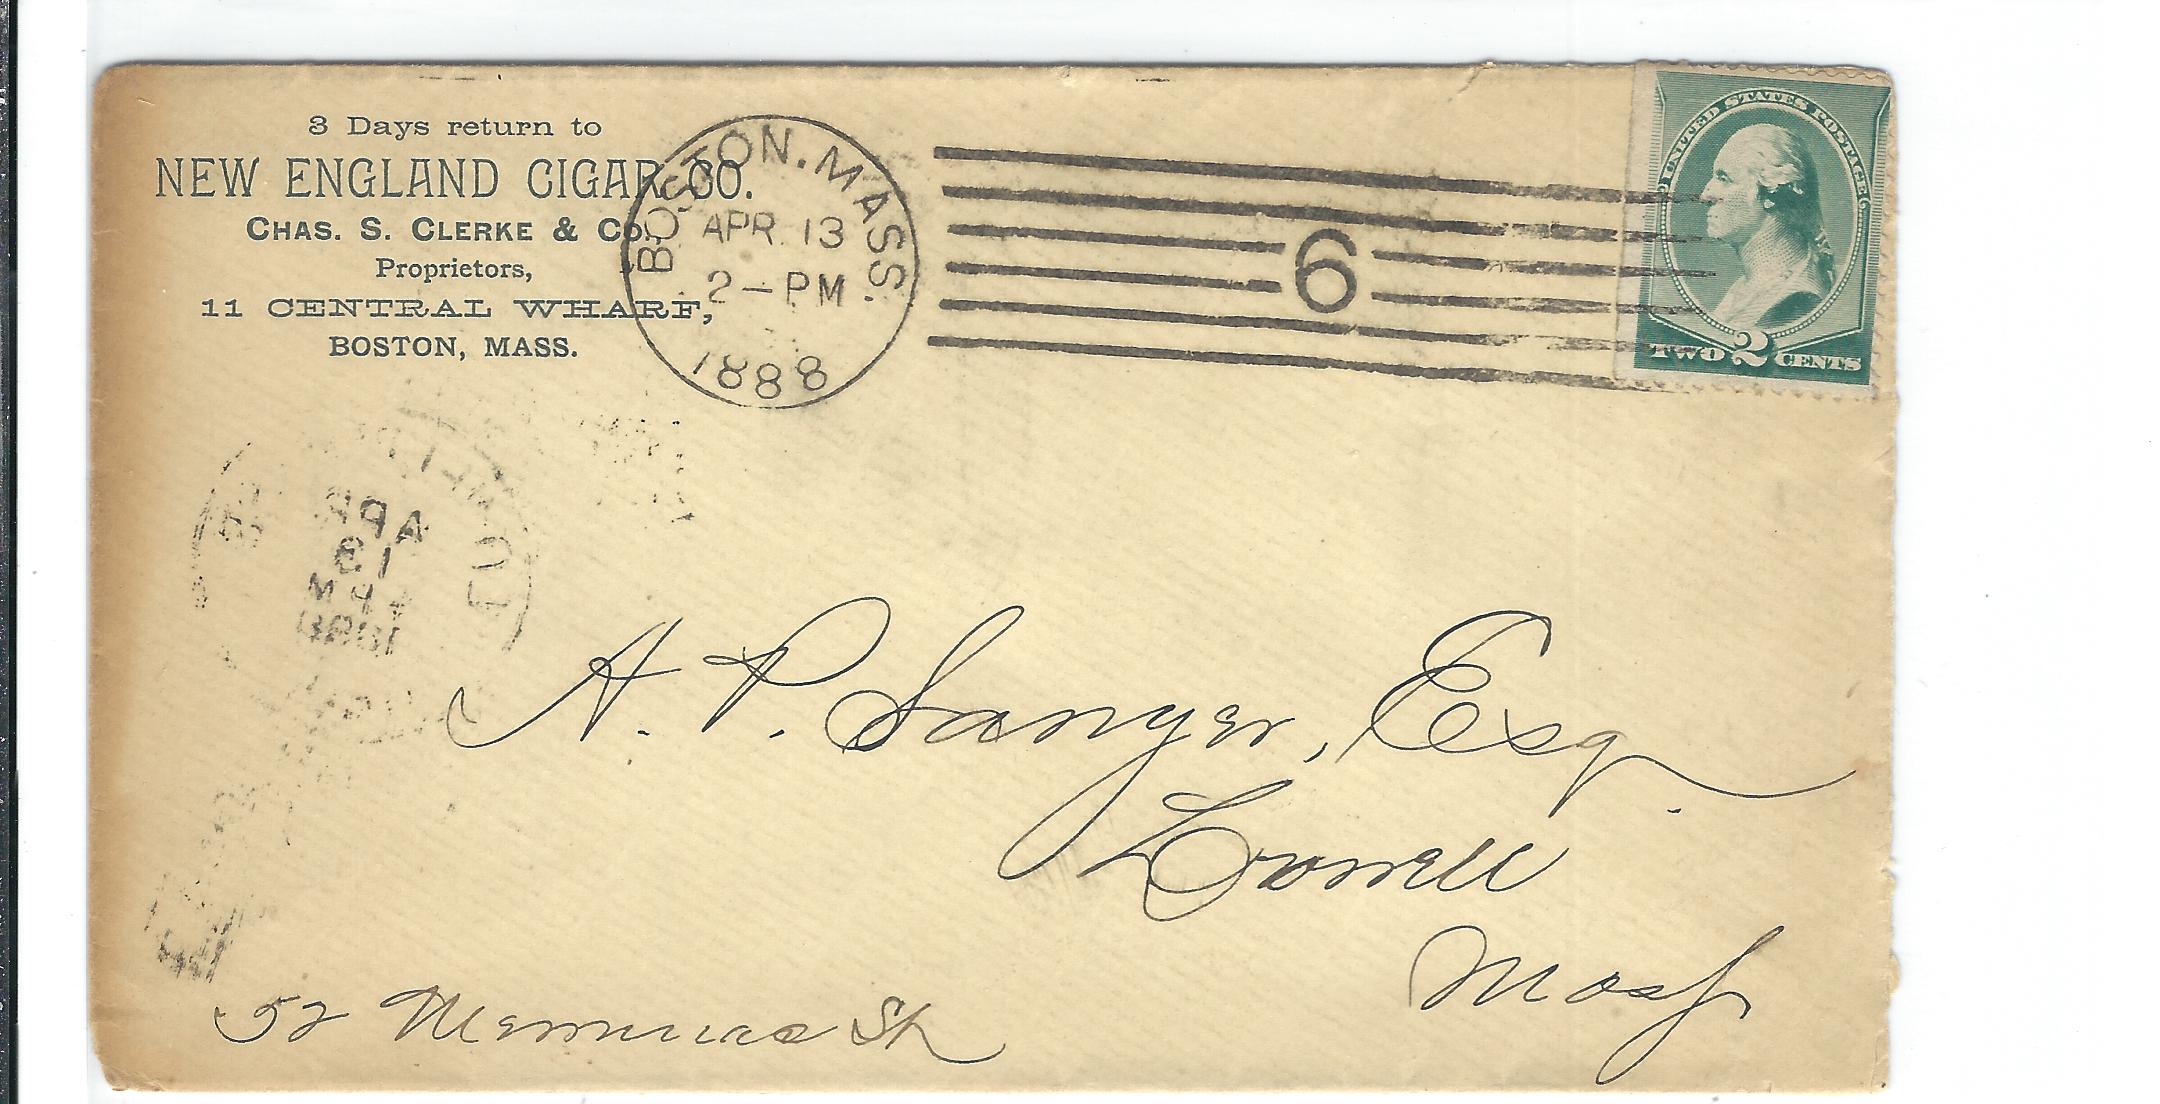 3 Days return to
NEW ENGLAND CIGAR CO.
CHAS. S. CLERKE & CO.,
Proprietors,
11 CENTRAL WHARF,
BOSTON, MASS.
BOSTON. MASS.
APR 13
2-PM
1888
6
UNITED STATES POSTAGE
TWO 2 CENTS
APR
13
PM
1888
A. P. Sanger, Esq.
Lowell
Mass
52 Merrimac St